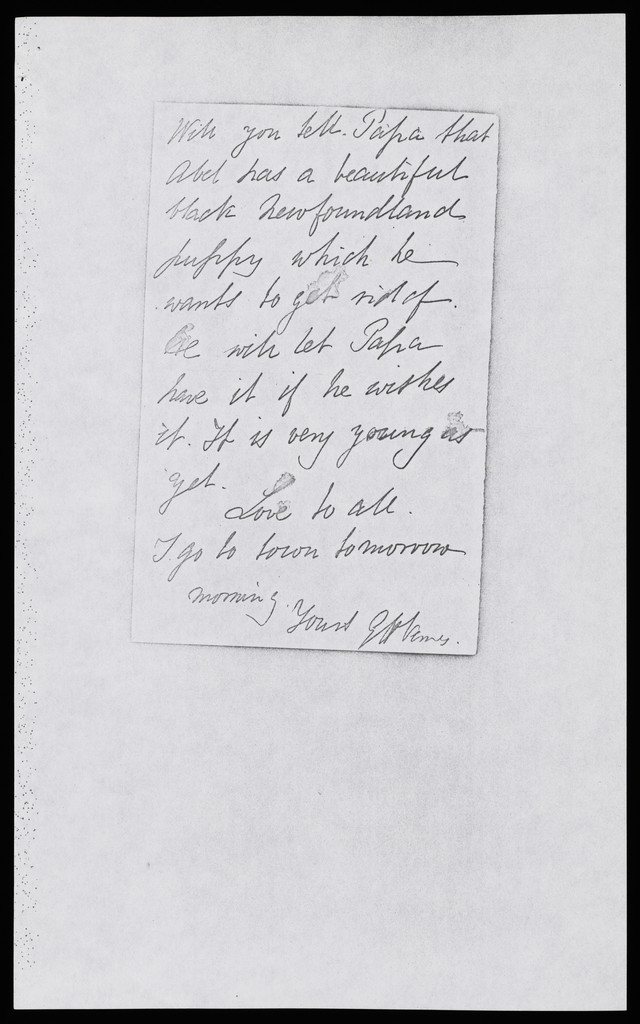 Will you tell. Papa that
Abel has a beautiful
black Newfoundland
puppy which he
wants to get rid of.
He will let Papa
have it if he wishes
it. It is very young as
yet.
Love to all.
I go to town tomorrow
morning.
Yours